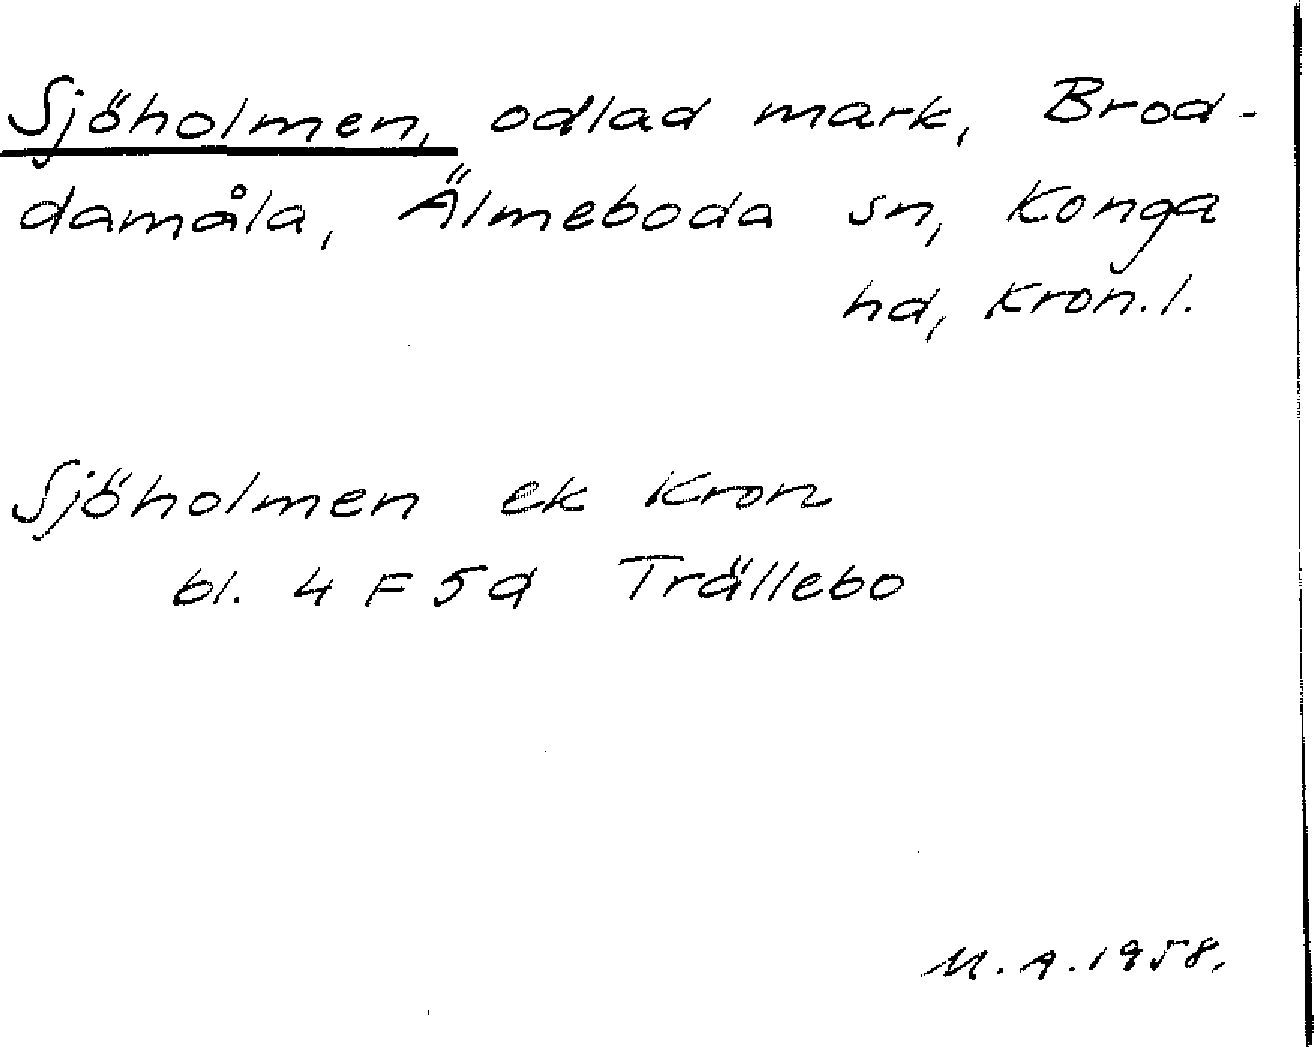 Sjöholmen, odlad mark, Brod-
damåla, Älmeboda sn, Konga
hd, Kron.l.
Sjöholmen ek Kron
bl. 4 F 5d Trällebo
M.A.1958.